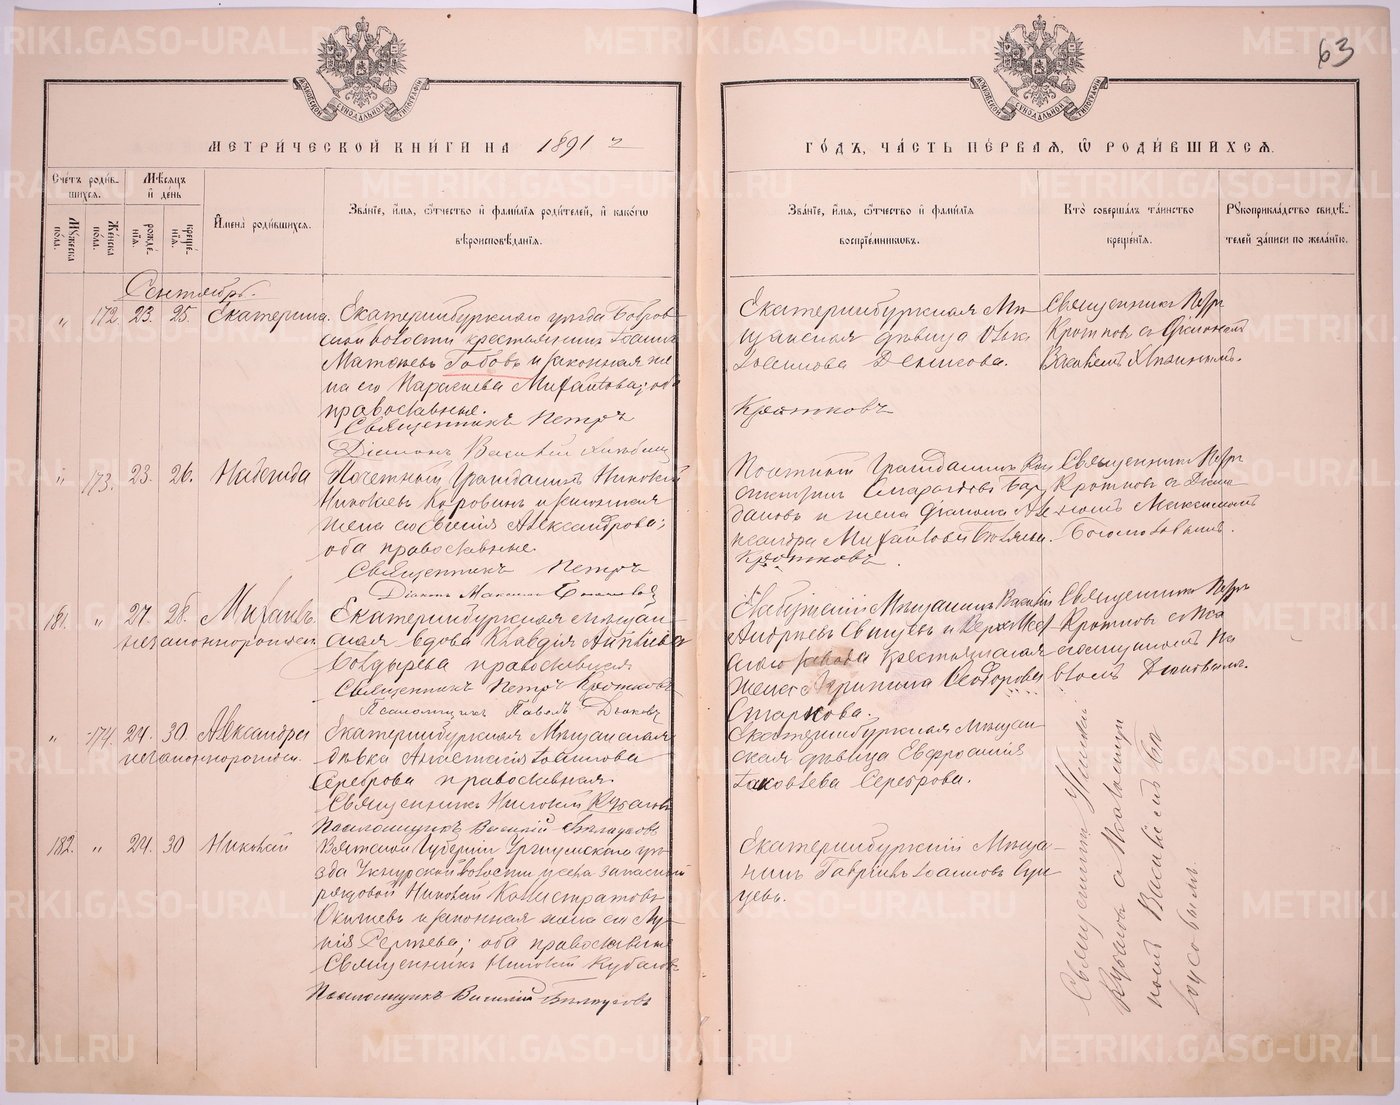 63
МОСКОВСКОЙ СѴНОДАЛЬНОЙ ТИПОГРАФІИ
МОСКОВСКОЙ СѴНОДАЛЬНОЙ ТИПОГРАФІИ
МЕТРИ́ЧЕСКОЙ КНИ́ГИ НА 1891 г
ГО́ДЪ, ЧА́СТЬ ПЕ́РВАЯ, Ѽ РОДИ́ВШИХСЯ.
Сче́тъ роди́в-
шихся.
Му́жеска по́ла.
Же́нска по́ла.
Мѣ́сяцъ и де́нь
рожде́нія.
креще́нія.
Имена̀ роди́вшихся.
Зва́ніе, и́мя, ѻ҆́тчество и фами́лія роди́телей, и како́гѡ
вѣроисповѣ́данія.
Зва́ніе, и́мя, ѻ҆́тчество и фами́лія
воспріе́мниковъ.
Кто̀ соверша́лъ та́инство
креще́нія.
Рꙋкоприкла́дство свидѣ́-
телей за́писи по жела́нію.
Сентябрь.
„ 172. 23. 25. Екатерина.
Екатеринбургскаго уѣзда Бобров-
ской волости крестьянинъ Іоаннъ
Матѳеевъ Гобовъ и законная же-
на его Параскева Михаилова; оба
православные.
Священникъ Петръ
Діаконъ Василій
Екатеринбургская Мѣ-
щанская дѣвица Ольга
Іоакимова Денисова.
Кротковъ
Священникъ Петръ
Кротковъ съ Діакономъ
Василіемъ
„ 173. 23. 26. Надежда
Почетный Гражданинъ Николай
Николаевъ Коровинъ и законная
жена его Евгенія Александрова;
оба православные.
Священникъ Петръ
Діаконъ Максимъ Богословъ
Почетный Гражданинъ
Смарагдовъ
и жена Діакона Але-
ксандра Михайлова
Кротковъ
Священникъ Петръ
Кротковъ съ Діако-
номъ Максимомъ
Богословымъ.
181. „ 27. 28. Михаилъ
незаконнорожден.
Екатеринбургская мѣщан-
ская вдова Клавдія
Болдырева православная
Священникъ Петръ Кротковъ
Псаломщикъ Павелъ Дьяковъ
Елабужскій Мѣщанинъ Василій
Андреевъ и Верхъ-Исет-
скаго завода крестьянская
жена Агрипина Ѳеодорова
Старкова.
Священникъ Петръ
Кротковъ съ Пса-
ломщикомъ Па-
вломъ Дьяковымъ.
„ 174. 24. 30. Александра
незаконнорожден.
Екатеринбургская Мѣщанская
дѣвка Анастасія Іоаннова
Сереброва православная.
Священникъ Николай Кубасовъ
Псаломщикъ Василій Бѣлоусовъ
Екатеринбургская Мѣщан-
ская дѣвица Евфросинія
Іаковлева Сереброва.
182. „ 24. 30 Николай
Вятской Губерніи Уржумскаго уѣ-
зда волости запасный
рядовой Николай Калистратовъ
Окишевъ и законная жена его Лу-
кія Сергѣева; оба православные
Священникъ Николай Кубасовъ
Псаломщикъ Василій Бѣлоусовъ
Екатеринбургскій Мѣща-
нинъ Гавріилъ Іоанновъ
Священникъ Николай
Кубасовъ съ Псаломщи-
комъ Василіемъ Бѣ-
лоусовымъ.
METRIKI.GASO-URAL.RU